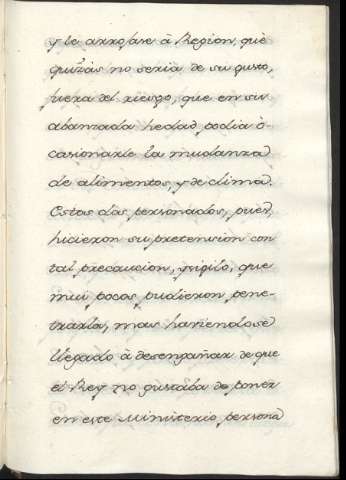 y le arrojase â Region, que
quizàs no seria de su gusto,
fuera del riesgo, que en su
abanzada hedad podia ô-
casionarle la mudanza
de alimentos, y de clima.
Estos dos personados, pues,
hicieron su pretension con
tal precaucion, y sigilo, que
mui pocos pudieron pene-
trarla, mas haviendose
llegado â desengañar de que
el Rey no gustaba de poner
en este Ministerio persona